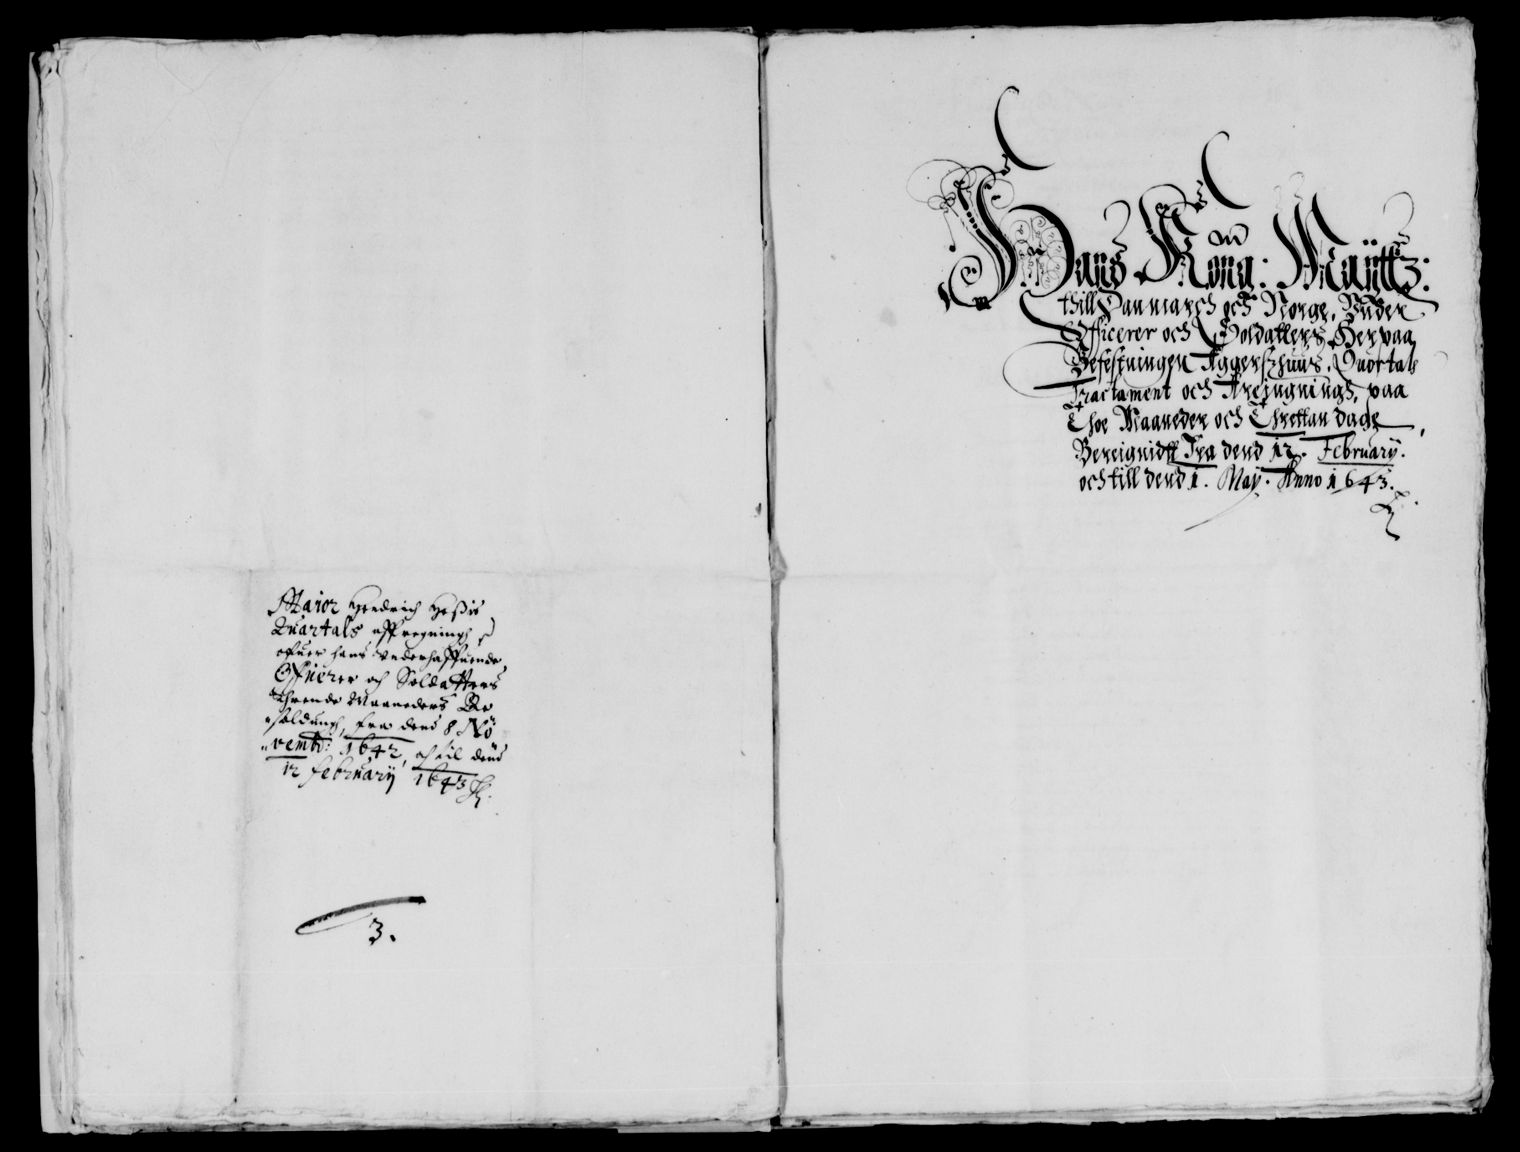 Maior Hendrich Hessis
Quartals affregningh
ofuer hans Underhaffuende
Officerer och Soldatters
Thrende Maaneders Be
soldungh, fra dend 8 No
vemb: 1642, och til dend
12 februarij 1643
3.
Hans Kong: Maÿttz:
thill Danmarch och Norge, Under
Officerer och Soldatters Her paa
Befestningen Aggerszhuus, Quortals
Tractament och Affreigningh, paa
Thoe Maaneder och Threttan dage
Bereignidtt Fra dend 12. Februarÿ.
och till dend 1. Maÿ. Anno 1643.